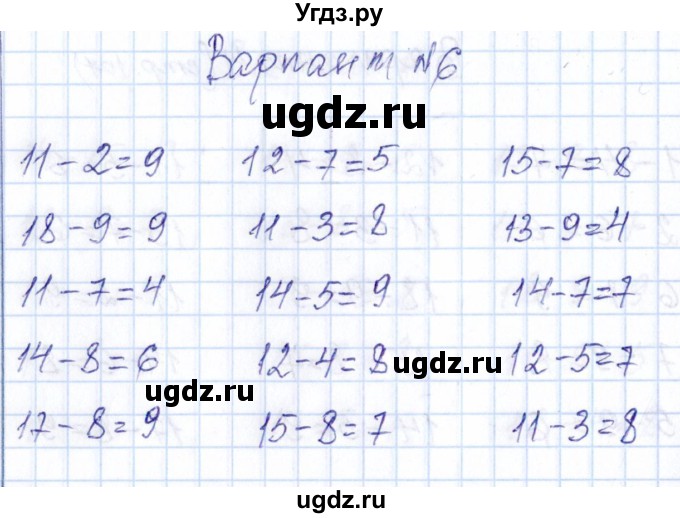 Угдз.ру
Вариант №6
ugdz.ru
11-2=9 12-7=5 15-7=8
18-9=9 11-3=8 13-9=4
11-7=4 14-5=9 14-7=7
14-8=6 12-4=8 12-5=7
ugdz.ru ugdz.ru
17-8=9 15-8=7 11-3=8
ugdz.ru
ugdz.ru